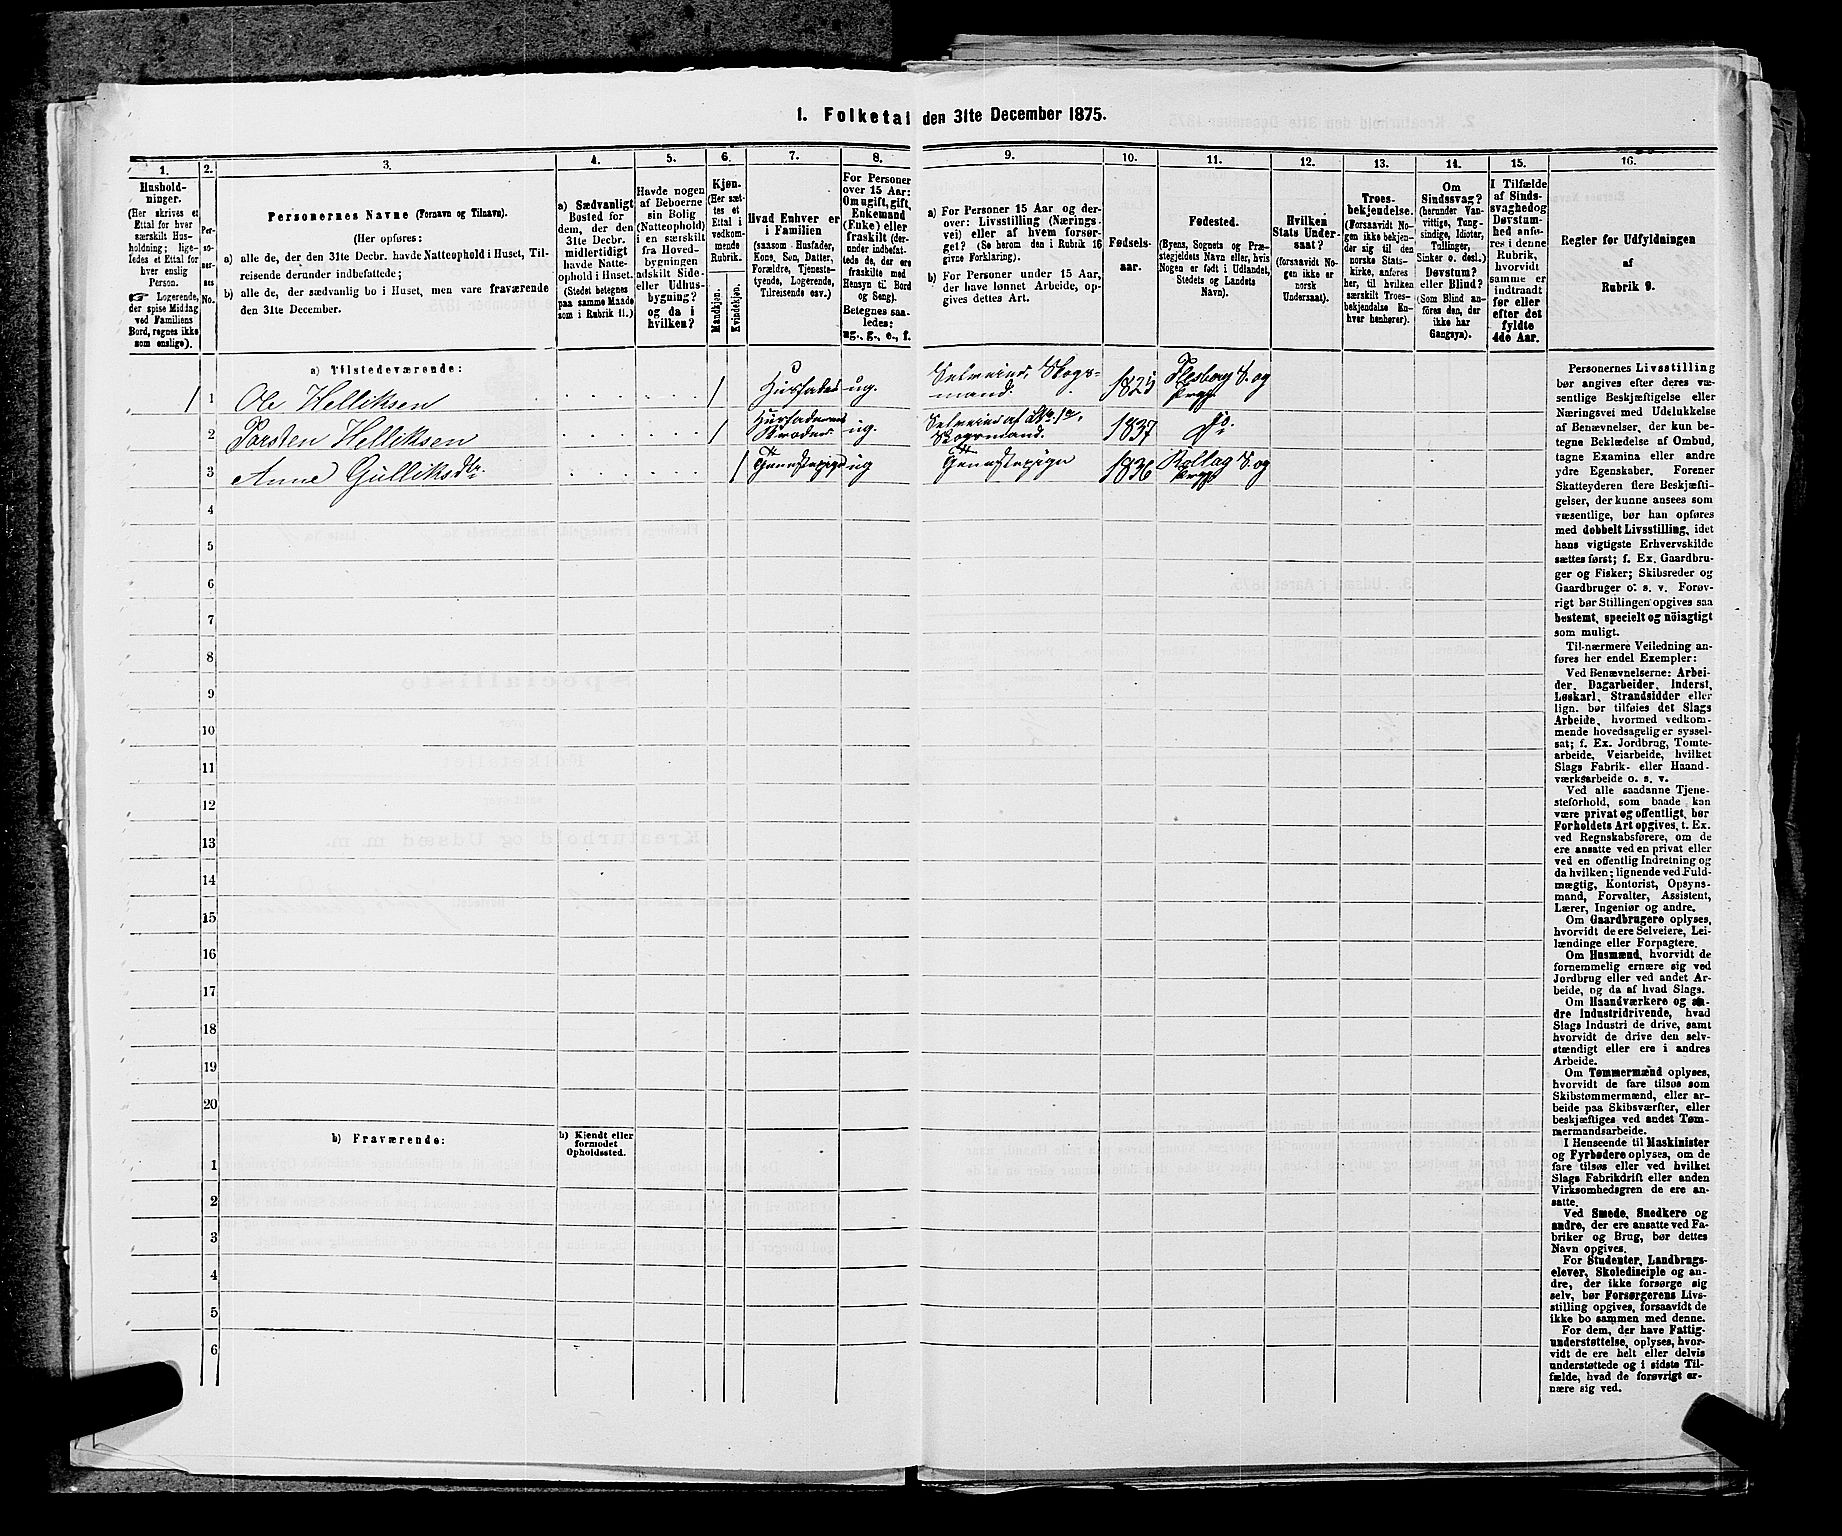 1. Folketal den 31te December 1875.
1.
Hushold-
ninger.
(Her skrives et
Ettal for hver
særskilt Hus-
holdning; lige-
ledes et Ettal for
hver enslig
Person.
☞ Logerende,
der spise Middag
ved Familiens
Bord, regnes ikke
som enslige).
2.
Per-
so-
ner-
nes
No.
3.
Personernes Navne (Fornavn og Tilnavn).
(Her opføres:
a) alle de, der den 31te Decbr. havde Natteophold i Huset, Til-
reisende derunder indbefattede;
b) alle de, der sædvanlig bo i Huset, men vare fraværende
den 31te December.
4.
a) Sædvanligt
Bosted for
dem, der den
31te Decbr.
midlertidigt
havde Natte-
ophold i Huset.
(Stedet betegnes
paa samme Maade
som i Rubrik 11.)
5.
Havde nogen
af Beboerne
sin Bolig
(Natteophold)
i en særskilt
fra Hoved-
bygningen
adskilt Side-
eller Udhus-
bygning?
og da i
hvilken?
6.
Kjøn.
(Her sæt-
tes et
Ettal i
vedkom-
mende
Rubrik.
Mandkjøn.
Kvindekjøn.
7.
Hvad Enhver er
i Familien
(saasom Husfader,
Kone, Søn, Datter,
Forældre, Tjeneste-
tyende, Logerende,
Tilreisende osv.)
8.
For Personer
over 15 Aar:
Om ugift, gift,
Enkemand
(Enke) eller
fraskilt (der-
under indbefat-
tede de, der ere
fraskilte med
Hensyn til Bord
og Seng).
Betegnes saa-
ledes:
ug., g., e., f.
9.
a) For Personer 15 Aar og der-
over: Livsstilling (Nærings-
vei) eller af hvem forsør-
get? (Se herom den i Rubrik 16
givne Forklaring).
b) For Personer under 15 Aar,
der have lønnet Arbeide, op-
gives dettes Art.
10.
Fødsels-
aar.
11.
Fødested.
(Byens, Sognets og Præ-
stegjeldets Navn eller, hvis
Nogen er født i Udlandet,
Stedets og Landets
Navn).
12.
Hvilken
Stats Under-
saat?
(forsaavidt No-
gen ikke er
norsk
Undersaat).
13.
Troes-
bekjendelse.
(Forsaavidt No-
gen ikke bekjen-
der sig til den
norske Stats-
kirke, anføres
her, til hvilken
særskilt Troes-
bekjendelse En-
hver henhører).
14.
Om
Sindssvag?
(herunder Van-
vittige, Tung-
sindige, Idioter,
Tullinger,
Sinker o. desl.)
Døvstum?
eller Blind?
(Som Blind an-
føres den, der
ikke har
Gangsyn).
15.
I Tilfælde
af Sinds-
svaghed og
Døvstum-
hed anfø-
res i denne
Rubrik,
hvorvidt
samme er
indtraadt
før eller
efter det
fyldte
4de Aar.
16.
Regler for Udfyldningen
af
Rubrik 9.
a) Tilstedeværende:
1 1 Ole Helliksen 1 Husfader ug. Selveier, Skogs-
mand. 1825 Flesberg S. og
Prgj.
2 Torsten Helliksen 1 Husfaderens
Broder ug. Selveier af
Skogsmand. 1837 Do.
3 Anne Gulliksdtr. 1 Tjenestepige ug Tjenestepige 1836 Rollag S. og
Prgj.
4
5
6
7
8
9
10
11
12
13
14
15
16
17
18
19
20
b) Fraværende:
b) Kjendt eller
formodet
Opholdssted.
1
2
3
4
5
6
Personernes Livsstilling
bør angives efter deres væ-
sentlige Beskjæftigelse eller
Næringsvei med Udelukkelse
af Benævnelser, der kun be-
tegne Beklædelse af Ombud,
tagne Examina eller andre
ydre Egenskaber. Forener
Skatteyderen flere Beskjæfti-
gelser, der kunne ansees som
væsentlige, bør han opføres
med dobbelt Livsstilling, idet
hans vigtigste Erhvervskilde
sættes først; f. Ex. Gaardbru-
ger og Fisker; Skibsreder og
Gaardbruger o. s. v. Forøv-
rigt bør Stillingen opgives saa
bestemt, specielt og nöiagtigt
som muligt.
Til nærmere Veiledning an-
føres her endel Exempler:
Ved Benævnelserne: Arbei-
der, Dagarbeider, Inderst,
Løskarl, Strandsidder eller
lign. bør tilføies det Slags
Arbeide, hvormed vedkom-
mende hovedsagelig er syssel-
sat; f. Ex. Jordbrug, Tomte-
arbeide, Veiarbeide, hvilket
Slags Fabrik- eller Haand-
værksarbeide o. s. v.
Ved alle saadanne Tjene-
steforhold, som baade kan
være privat og offentligt, bør
Forholdets Art opgives, t. Ex.
ved Regnskabsførere, om de
ere ansatte ved en privat eller
ved en offentlig Indretning og
da hvilken; lignende ved Fuld-
mægtig, Kontorist, Opsyns-
mand, Forvalter, Assistent,
Lærer, Ingeniør og andre.
Om Gaardbrugere oplyses,
hvorvidt de ere Selveiere, Lei-
lændinge eller Forpagtere.
Om Husmænd, hvorvidt de
fornemmelig ernære sig ved
Jordbrug eller ved andet Ar-
beide, og da af hvad Slags.
Om Haandværkere og an-
dre Industridrivende, hvad
Slags Industri de drive, samt
hvorvidt de drive den selv-
stændigt eller ere i andres
Arbeide.
Om Tømmermænd oplyses,
hvorvidt de fare tilsøs som
Skibstømmermænd, eller ar-
beide paa Skibsværfter, eller
beskjæftiges ved andet Tøm-
mermandsarbeide.
I Henseende til Maskinister
og Fyrbødere oplyses, om de
fare tilsøs eller ved hvilket
Slags Fabrikdrift eller anden
Virksomhedsgren de ere an-
satte.
Ved Smede, Snedkere og
andre, der ere ansatte ved Fa-
briker og Brug, bør dettes
Navn opgives.
For Studenter, Landbrugs-
elever, Skoledisciple og an-
dre, der ikke forsørge sig
selv, bør Forsørgerens Livs-
stilling opgives, forsaavidt de
ikke bo sammen med denne.
For dem, der have Fattig-
understøttelse, oplyses, hvor-
vidt de ere helt eller delvis
understøttede og i sidste Til-
fælde, hvad de forøvrigt er-
nære sig ved.